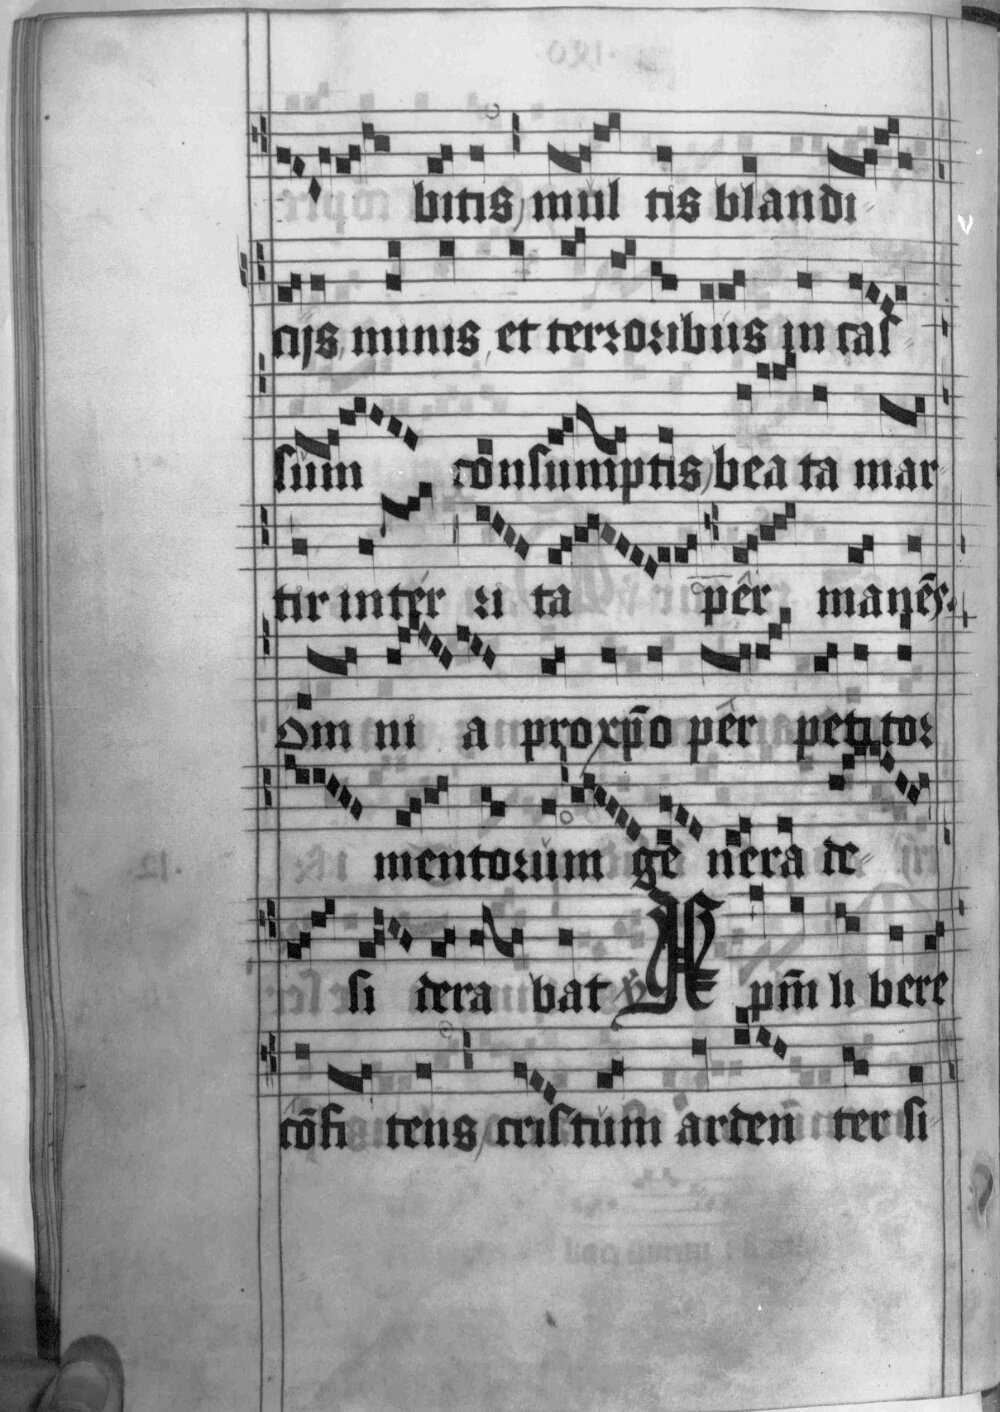 bitis mul tis blandi
cijs minis et terroribus in cas
sum consumptis bea ta mar
tir inter ri ta per manēs
Om ni a pro xp̄o per petitor
mentorum ge nera de
si dera bat ℣ Ip̄m li bere
cōfi tens cristum arden ter si